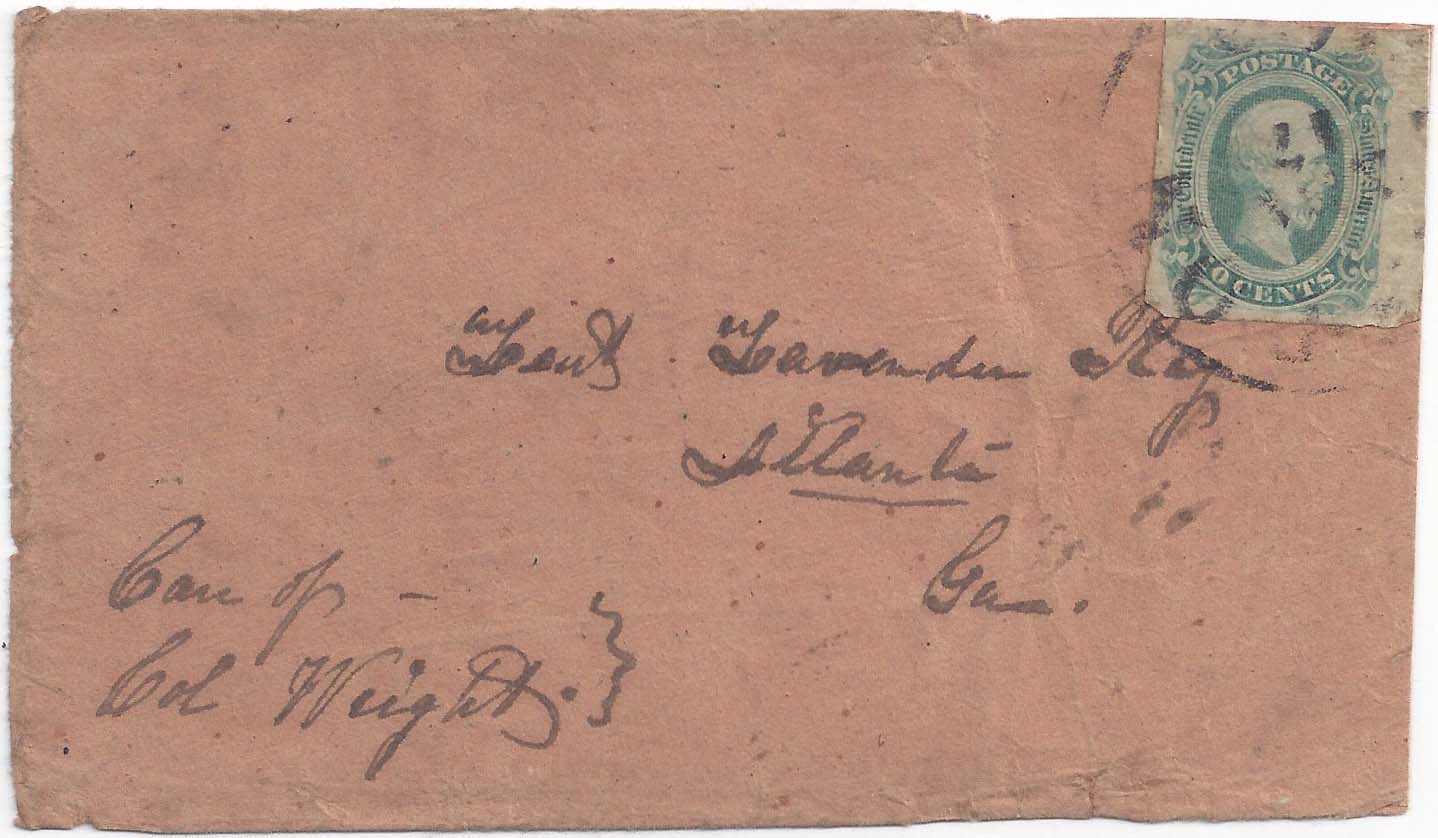 POSTAGE
The Confederate States of America
10 CENTS
Lieut. Lavender Ray
Atlanta
Ga.
Care of -
Col Wright.